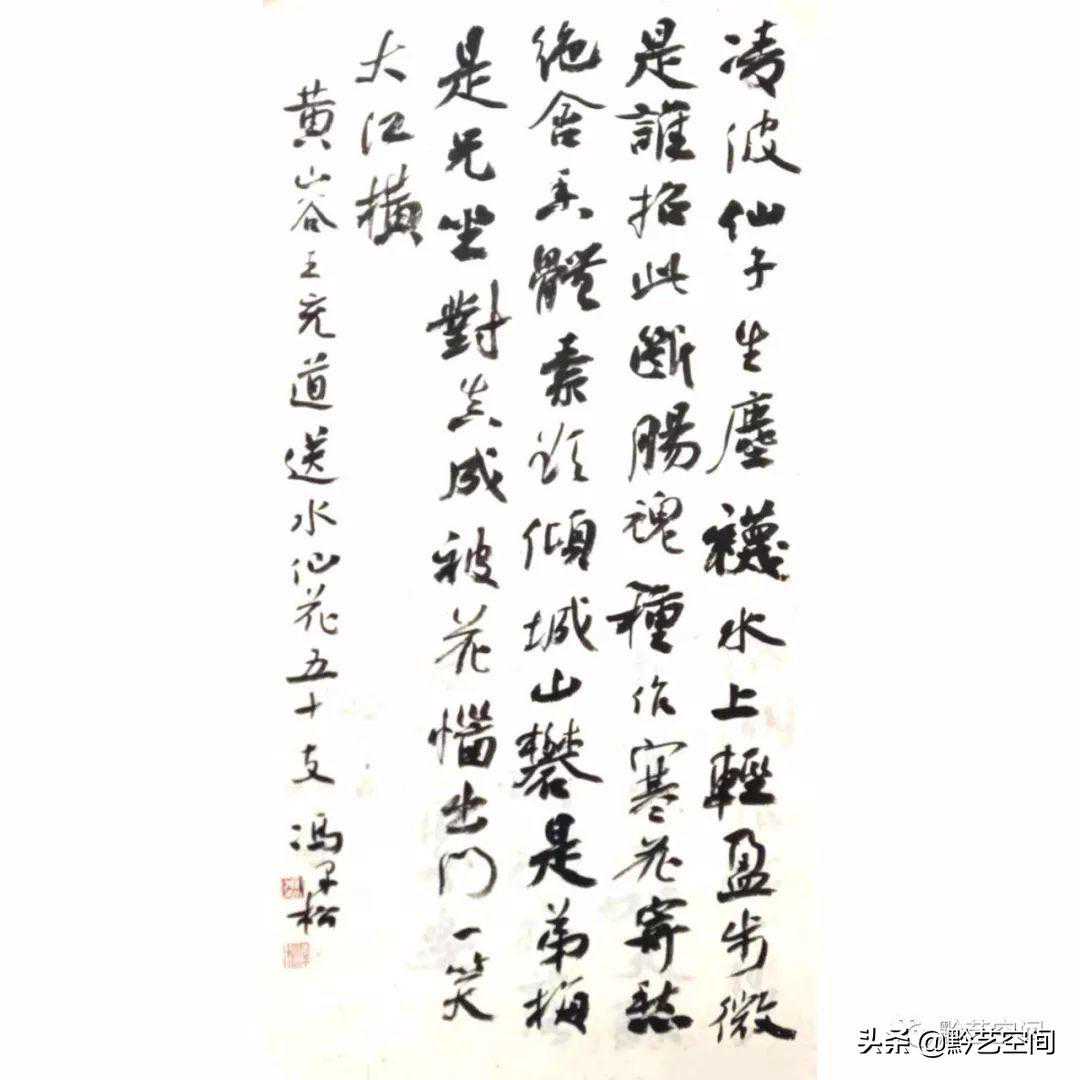 凌波仙子生塵襪水上輕盈步微
是誰招此斷腸魂種作寒花寄愁
絶含香體素欲傾城山礬是弟梅
是兄坐對真成被花惱出門一笑
大江橫
黄山谷王充道送水仙花五十支 冯松
黔艺空间
头条 @黔艺空间